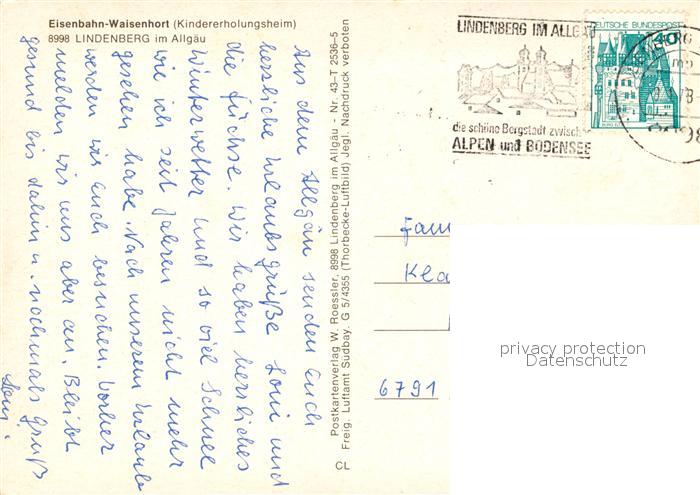 Eisenbahn-Waisenhort (Kindererholungsheim)
8998 LINDENBERG im Allgäu
Aus dem Allgäu senden Euch
herzliche Urlaubsgrüße Loni und
die Füchse. Wir haben herrliches
Winterwetter und so viel Schnee
wie ich seit Jahren nicht mehr
gesehen habe. Nach unserem Urlaube
werden wir Euch besuchen. Vorher
melden wir uns aber an. Bleibt
gesund bis dahin u. nochmals Gruß
Loni.
Postkartenverlag W. Roessler, 8998 Lindenberg im Allgäu - Nr. 43-T 2536-5
Freig. Luftamt Südbay. G 5/4355 (Thorbecke-Luftbild) Jegl. Nachdruck verboten
CL
LINDENBERG IM ALLGÄU
die schöne Bergstadt zwischen
ALPEN und BODENSEE
DEUTSCHE BUNDESPOST
40
Fam
Kla
6791
privacy protection
Datenschutz